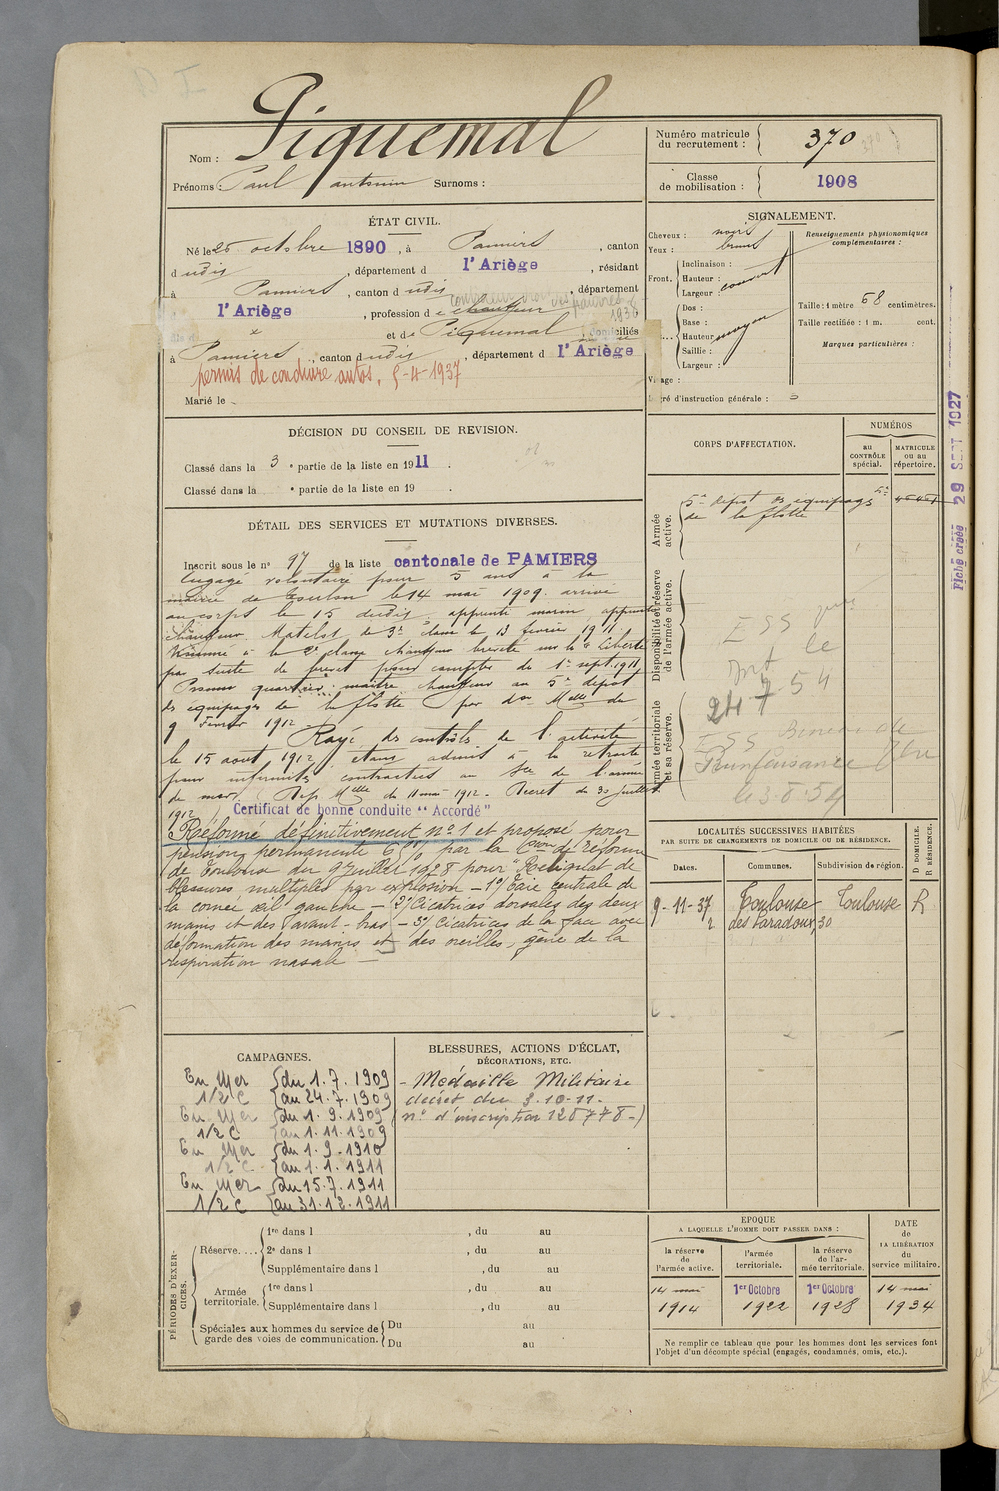 Nom : Piquemal
Prénoms : Paul Antonin Surnoms :
Numéro matricule du recrutement : 370
Classe de mobilisation : 1908
ÉTAT CIVIL.
Né le 25 octobre 1890, à Pamiers, canton
dudis, département d l'Ariège, résidant
à Pamiers, canton dudis, département
l'Ariège, profession de chauffeur
1936
et de Piquemal domiciliés
à Pamiers, canton dudis, département d l'Ariège
permis de conduire autos, 5-4-1937
Marié le
SIGNALEMENT.
Cheveux : noirs
Yeux : bruns
Front. Inclinaison :
Hauteur :
Largeur : couvert
Dos :
Base :
Hauteur : moyen
Saillie :
Largeur :
Visage :
Degré d'instruction générale : 3
Renseignements physionomiques complémentaires :
Taille : 1 mètre 68 centimètres.
Taille rectifiée : 1 m. cent.
Marques particulières :
DÉCISION DU CONSEIL DE REVISION.
Classé dans la 3e partie de la liste en 1911.
Classé dans la e partie de la liste en 19 .
DÉTAIL DES SERVICES ET MUTATIONS DIVERSES.
Inscrit sous le no 97 de la liste cantonale de PAMIERS
Engagé volontaire pour 5 ans à la
mairie de Toulon le 14 mai 1909. arrivé
au corps le 15 dudis, apprenti marin apprenti
chauffeur. Matelot de 3e classe le 13 février 1911.
Nommé à la 2e classe chauffeur breveté sur le Liberté
par suite de brevet pour compter du 1er sept. 1911
Promu quartier maître chauffeur au 5e dépôt
des équipages de la flotte par don Mlle du
9 Février 1912
Rayé des contrôles de l'activité
le 15 aout 1912, étant admis à la retraite
pour infirmités contractées au sce de l'armée
de mer. Dép Mlle du 11 mai 1912. Décret du 30 juillet
1912
Certificat de bonne conduite "Accordé"
Réformé définitivement no 1 et proposé pour
pension permanente 65% par la Cion de réforme
de Toulouse du 9 Juillet 1928 pour "Reliquat de
blessures multiples par explosion - 1o/ Taie centrale de
la cornée œil gauche - 2o/ Cicatrices dorsales des deux
mains et des avant-bras - 3o/ Cicatrices de la face avec
déformation des narines et des oreilles, gêne de la
respiration nasale -
CORPS D'AFFECTATION.
NUMÉROS
au CONTRÔLE spécial.
MATRICULE OU au répertoire.
Armée active.
5e dépôt des équipages
de la flotte
5e
Disponibilité et réserve de l'armée active.
Armée territoriale et sa réserve.
le
24 7 54
le 3.8.54
Fiche créée 29 SEPT 1927
LOCALITÉS SUCCESSIVES HABITÉES
PAR SUITE DE CHANGEMENTS DE DOMICILE OU DE RÉSIDENCE.
Dates. Communes. Subdivision de région. D DOMICILE. R RÉSIDENCE.
9-11-37 Toulouse Toulouse R
des Paradoux, 30
CAMPAGNES.
En Mer du 1.7.1909
1/2 C au 24.7.1909
En Mer du 1.9.1909
1/2 C au 1.11.1909
En Mer du 1.9.1910
1/2 C au 1.1.1911
En Mer du 15.7.1911
1/2 C au 31.12.1911
BLESSURES, ACTIONS D'ÉCLAT,
DÉCORATIONS, ETC.
- Médaille Militaire
décret du 3.10-11-
(no d'inscription 128778-)
PÉRIODES D'EXERCICES.
Réserve.... 1re dans l , du au
2e dans l , du au
Supplémentaire dans l , du au
Armée territoriale. 1re dans l , du au
Supplémentaire dans l , du au
Spéciales aux hommes du service de garde des voies de communication. Du au
Du au
EPOQUE
A LAQUELLE L'HOMME DOIT PASSER DANS :
la réserve de l'armée active.
l'armée territoriale.
la réserve de l'armée territoriale.
DATE de LA LIBÉRATION du service militaire.
14 mai 1er Octobre 1er Octobre 14 mai
1914 1922 1928 1934
Ne remplir ce tableau que pour les hommes dont les services font
l'objet d'un décompte spécial (engagés, condamnés, omis, etc.).